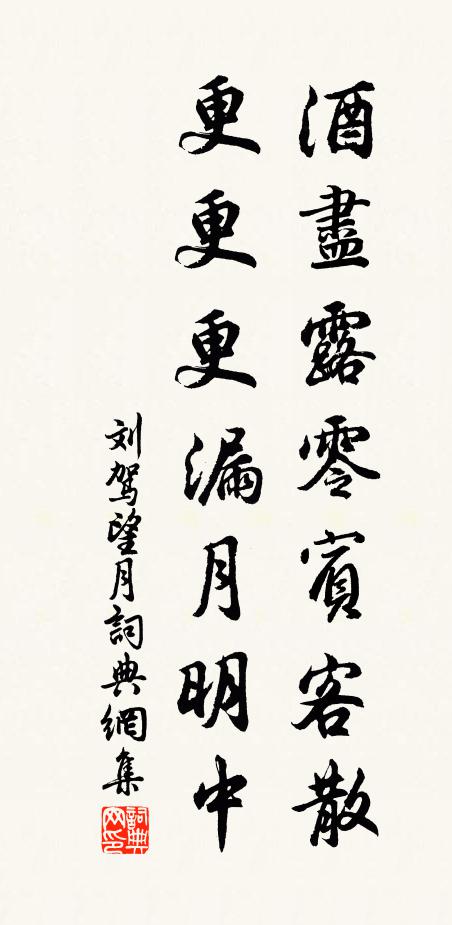 酒盡露零賓客散
更更更漏月明中
刘驾望月詞典網集
詞典
网印